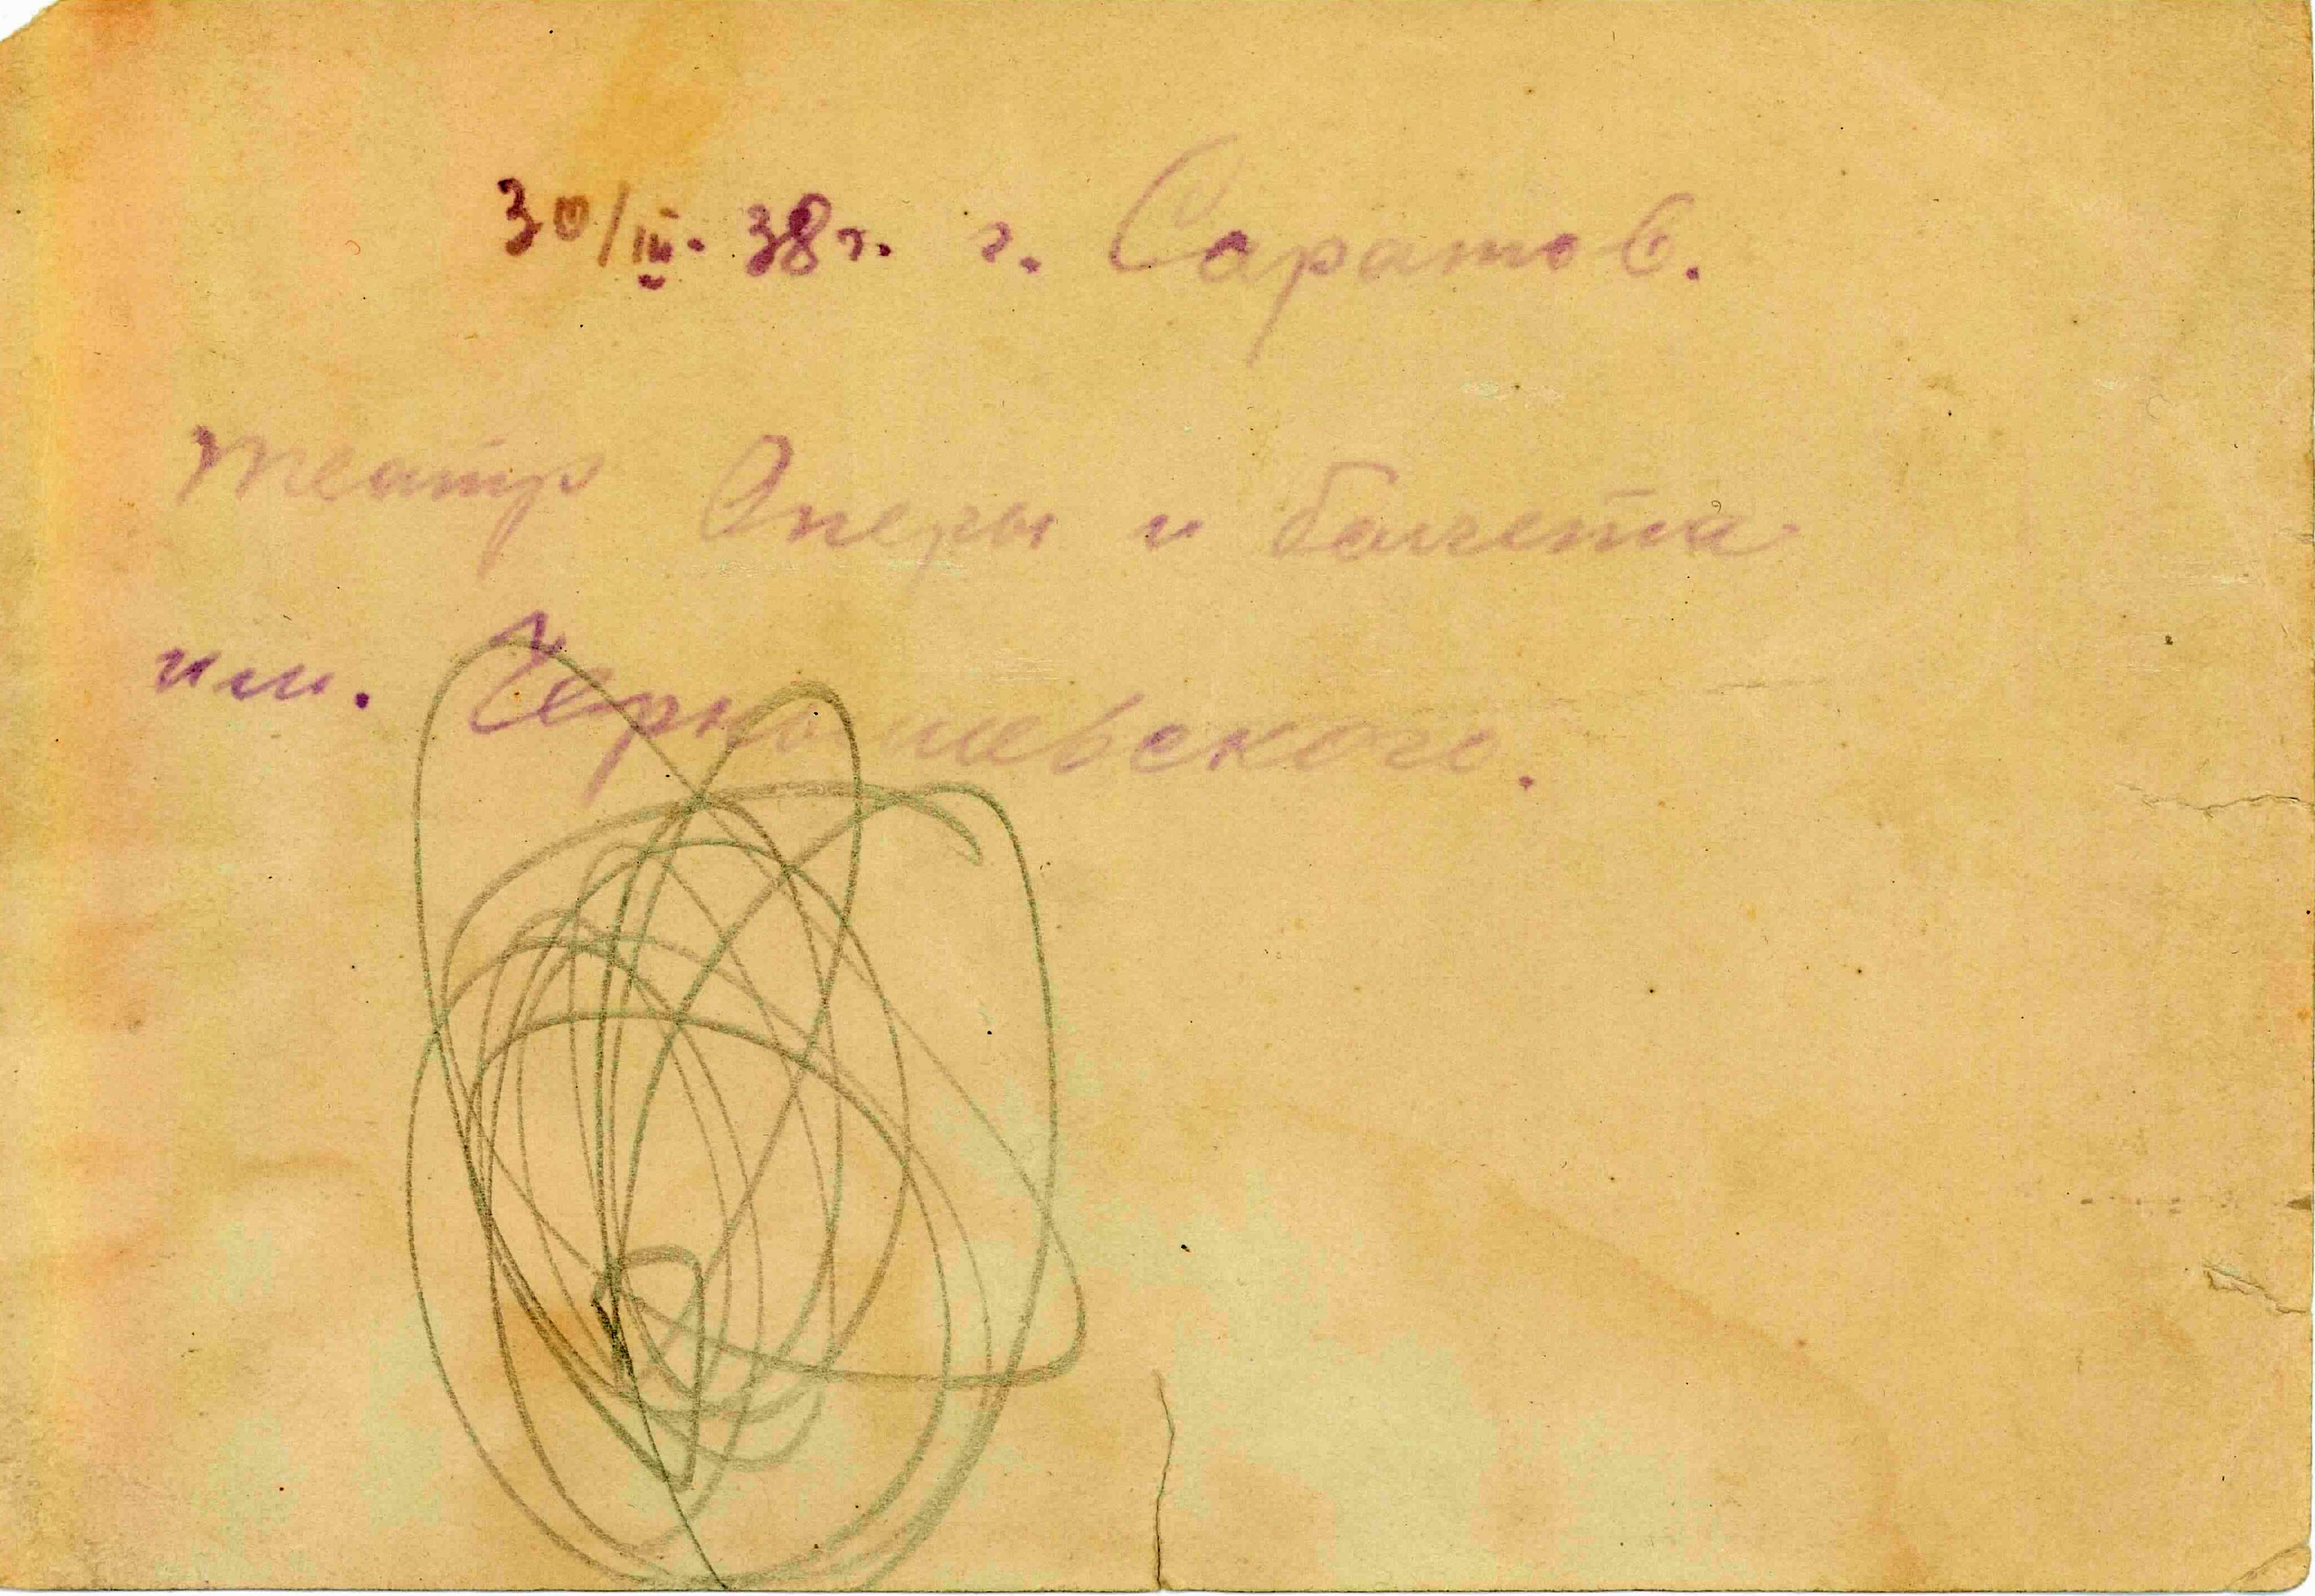 30/III. 38г. г. Саратов.
театр Оперы и балета
им. Чернышевского.